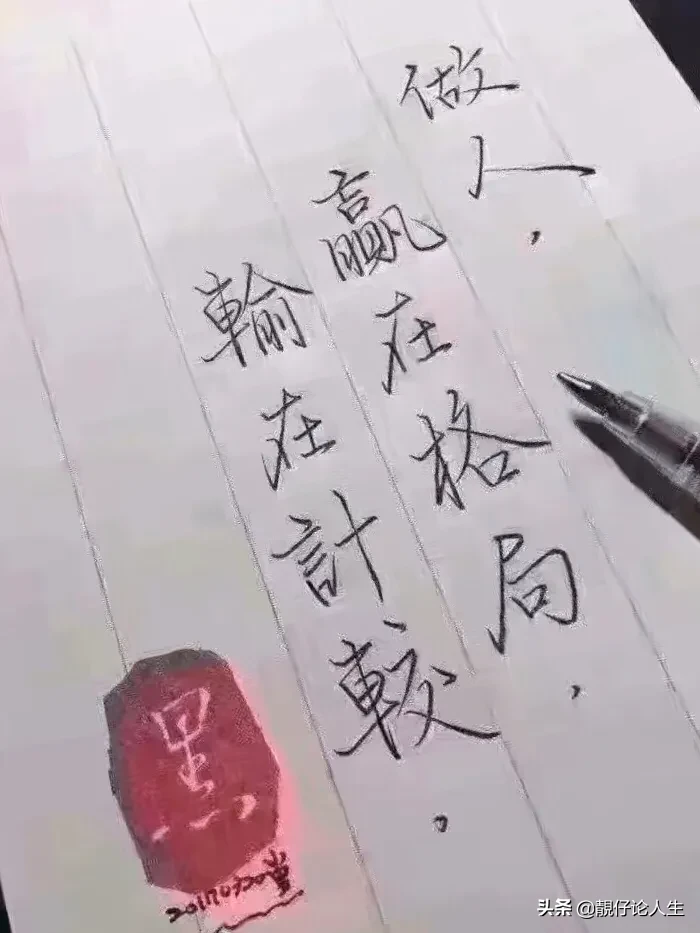 做人，
贏在格局，
輸在計較．
黑
头条 @靓仔论人生